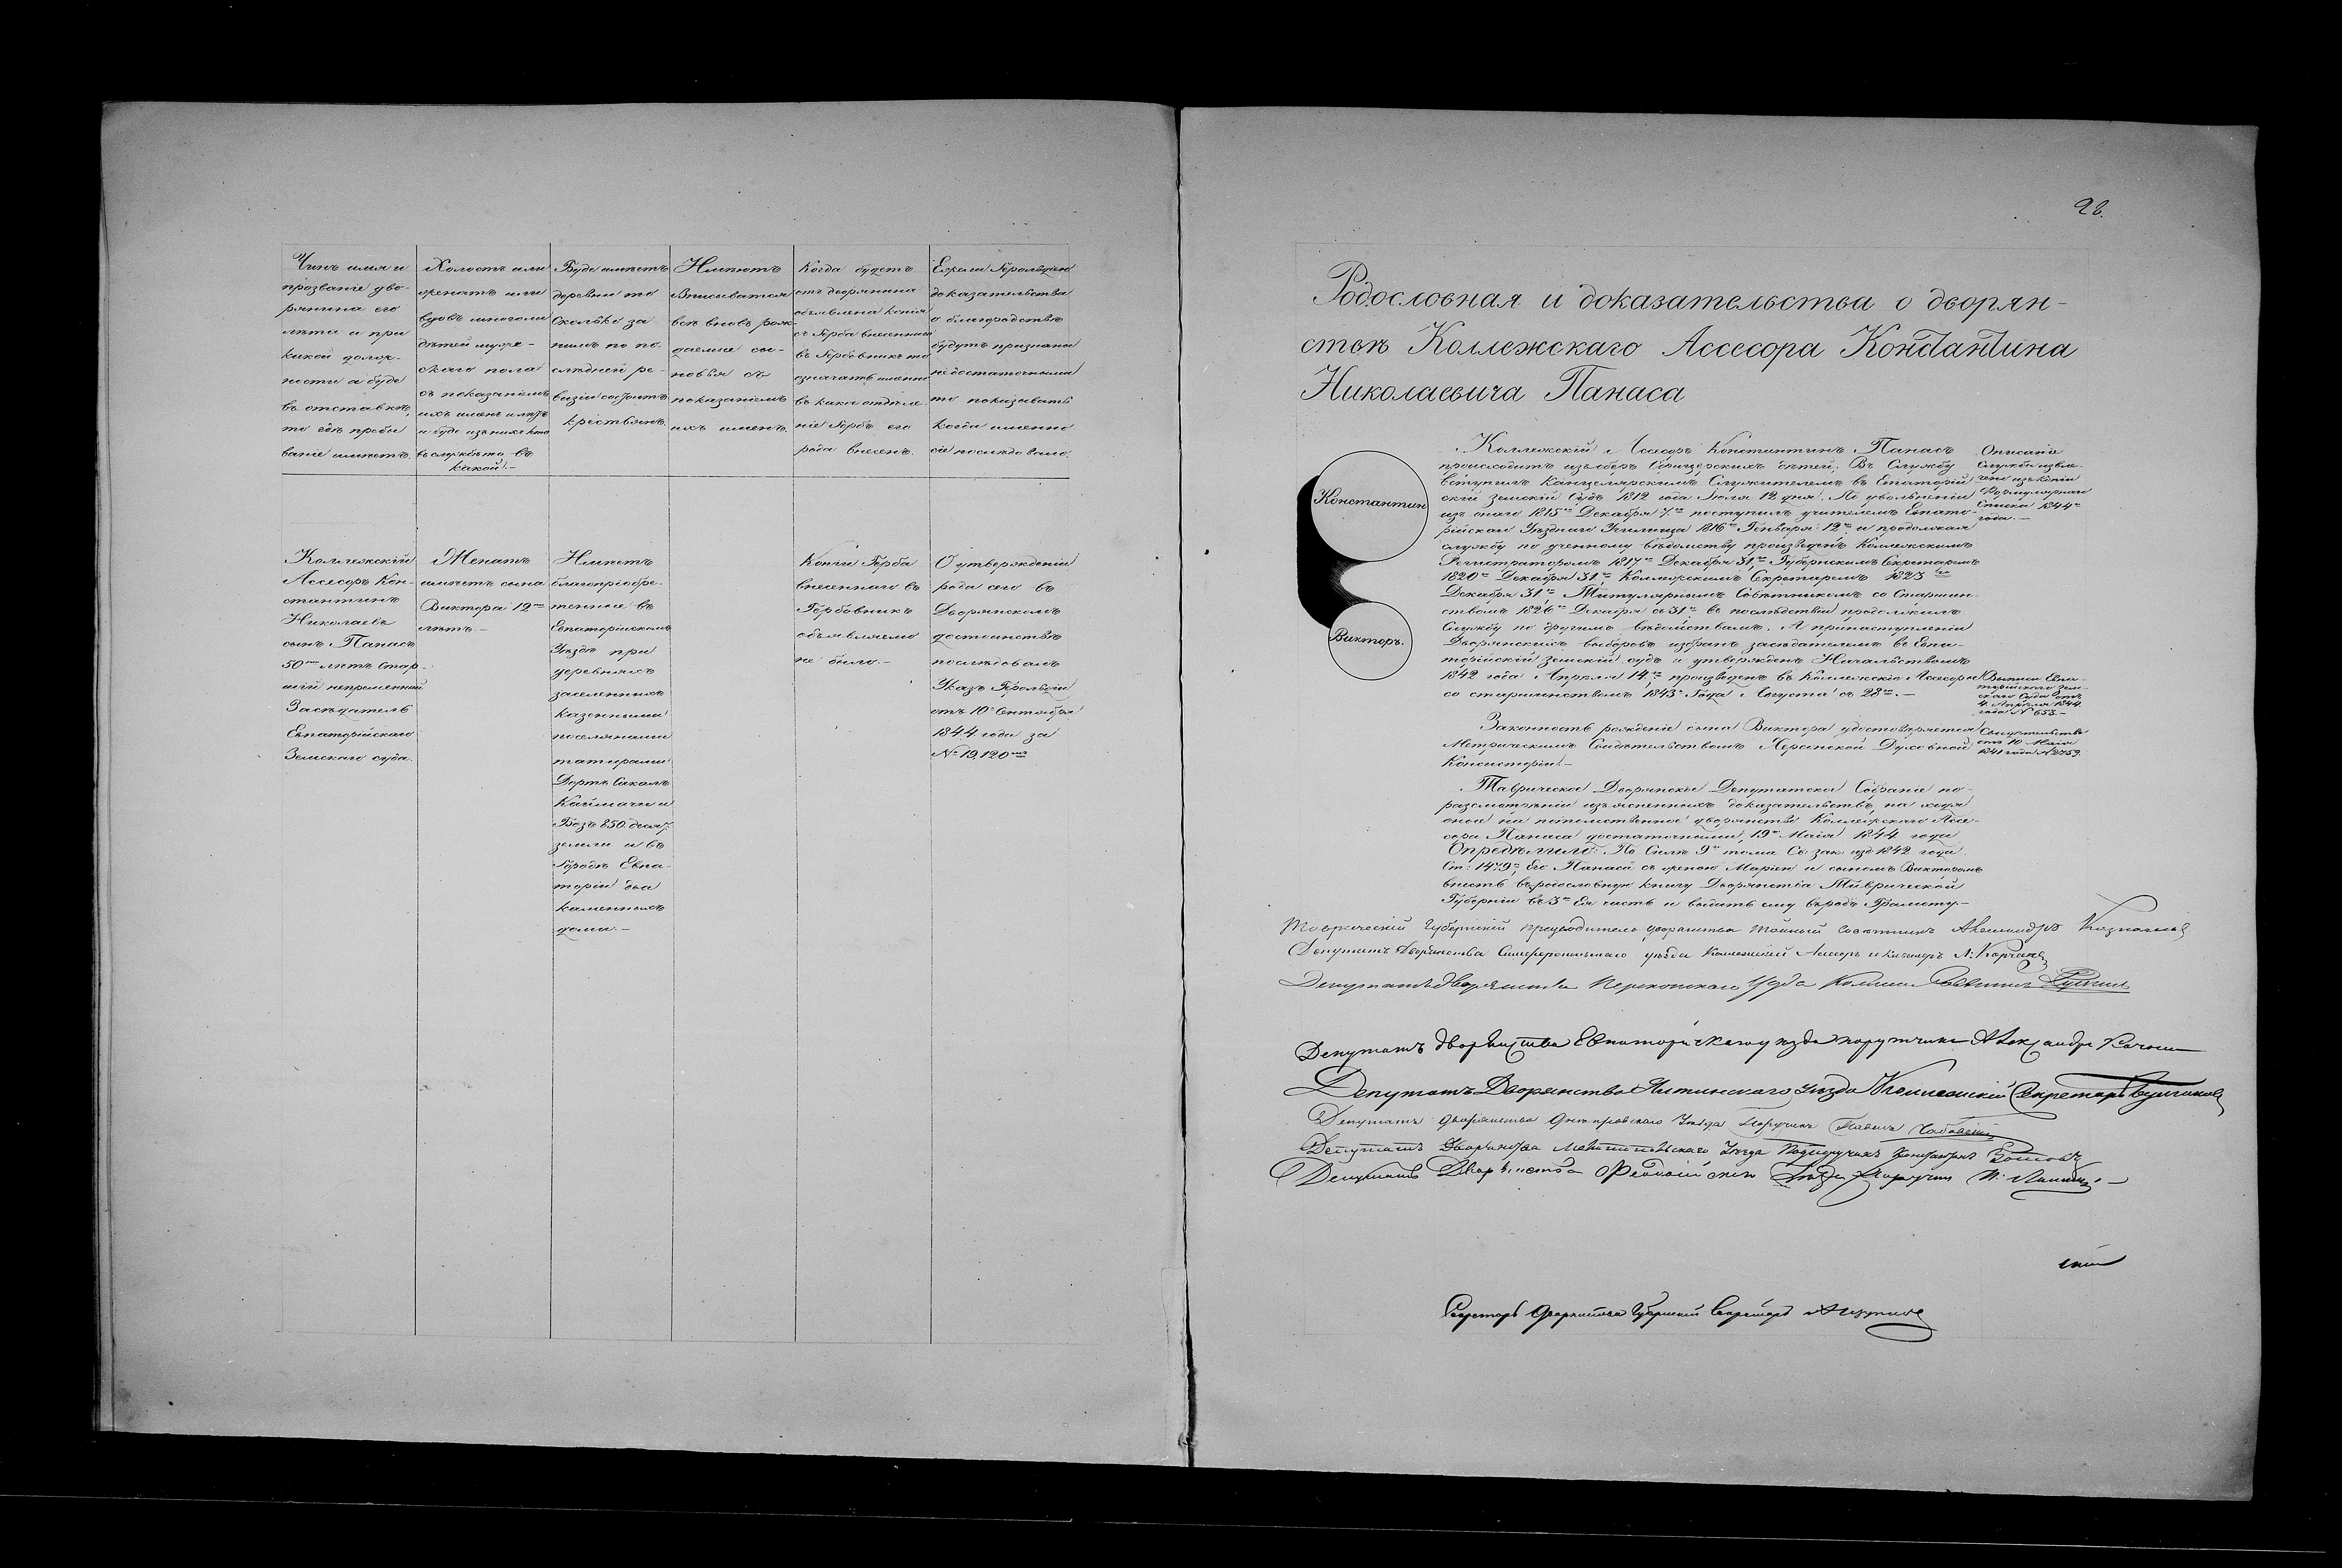 Чинъ имя и
прозваніе дво-
рянина его
лѣта и при
какой долж-
ности а буде
въ отставкѣ,
то гдѣ пребы
ваніе имѣетъ.
Холостъ или
женатъ или
вдовъ многоли
дѣтей муже-
скаго пола
съ показаніемъ
ихъ именъ и лѣтъ
и буде изъ нихъ кто
въ службѣ то въ
какой.-
Буде имѣетъ
деревни то
сколько за
нимъ по по-
слѣдней ре-
визіи состоитъ
крестьянъ.
Имѣютъ
вписыватся
всѣ вновь рож-
даемые сы-
новья съ
показаніемъ
ихъ именъ.
Когда будетъ
отъ дворянина
объявлена копія
съ Герба внесеннаго
въ Гербовникъ то
означать именно
въ какое отдѣле-
ніе Гербъ его
рода внесенъ.
Ежели Герольдіею
доказательства
о благородствѣ
будутъ признаны
недостаточными
то показывать
когда именно
сіе послѣдовало.
Коллежскій
Ассесоръ Кон-
стантинъ
Николаевъ
сынъ Панасъ
50 лѣтъ Стар-
шій непременный
Засѣдатель
Евпаторійскаго
Земскаго суда.
Женатъ
имѣетъ сына
Виктора 12
лѣтъ.-
Имѣетъ
благопріобре-
тенное въ
Евпаторійскомъ
Уѣздѣ при
деревняхъ
заселенныхъ
казенными
поселянами
татарами
Дортъ Сакалъ
Каймачи и
Бозъ 850 десят:
земли и въ
Городѣ Евпа-
торіи два
каменныхъ
дома.-
Копіи Герба
внесеннаго въ
Гербовникъ
объявляемо
не было.-
О утвержденіи
рода сего въ
Дворянскомъ
достоинствѣ
послѣдовалъ
Указъ Герольдіи
отъ 10 Сентября
1844 года за
№ 19,120
28.
Родословная и доказательства о дворян-
ствѣ Коллежскаго Ассесора Константина
Николаевича Панаса
Константин
Викторъ.
Коллежскій Ассесоръ Константинъ Панасъ
происходитъ изъ оберъ Офицерскихъ дѣтей. Въ Службу
вступилъ Канцелярскимъ Служителемъ въ Евпаторій
скій земскій Судъ 1812 года Іюля 12 дня. По увольненіи
изъ онаго 1815 Декабря 7 поступилъ учителемъ Евпато-
рійскаго Уѣзднаго Училища 1816 Генваря 12 и продолжая
службу по ученному вѣдомству произведенъ Коллежскимъ
Регистраторомъ 1817 Декабря 31, Губернскимъ Секретаремъ
1820 Декабря 31, Коллежскимъ Секретаремъ 1823
Декабря 31, Титулярнымъ Совѣтникомъ со Старшин-
ствомъ 1826 Декабря съ 31 въ послѣдствіи продолжалъ
Службу по другимъ вѣдомствамъ. А принаступленіи
Дворянскихъ выборовъ избранъ засѣдателемъ въ Евпа-
торійскій земскій судъ и утвержденъ Начальствомъ
1842 года Апрѣля 14, произведенъ въ Коллежскіе Ассесоры
со старшинствомъ 1843 Года Августа съ 28.-
Описаніе
Службы извле-
чено изъ копіи
Формулярнаго
Списка 1844
года.-
Выписи Евпа-
торійскаго Зем-
скаго Суда отъ
4 Апрѣля 1844
года № 653.-
Законность рожденія сына Виктора удостовѣряется
Метрическимъ Свидѣтельствомъ Херсонской Духовной
Консисторіи.-
Свидѣтельство
отъ 10 Маія
1841 года № 2759.
Таврическое Дворянское Депутатское Собраніе по
разсмотрѣніи изъясненныхъ доказательствъ, на ходя
оные на потомственное дворянство Коллежскаго Ассе-
сора Панаса достаточными, 19 Маія 1844 года
Опредѣлило: По Силѣ 9 тома Св: зак: изд 1842 года
Ст: 1479, Его Панаса съ женою Маріею и сыномъ Викторомъ
внесть въ родословную книгу Дворянства Таврической
Губерніи въ 3 Ея часть и выдать ему въ родъ Грамоту.-
Таврическій Губернскій предводитель дворянства тайный совѣтникъ Александръ Казначеевъ
Депутатъ Дворянства Симферопольскаго уѣзда Коллежскій Ассесоръ и Кавалеръ
Депутатъ дворянства Перекопскаго Уѣзда
Депутатъ дворянства Евпаторійскаго уѣзда порутчикъ Александръ
Депутатъ Дворянства Ялтинскаго уѣзда Коллежскій Секретарь
Депутатъ дворянства Днѣпровскаго Уѣзда Поручикъ Павелъ
Депутатъ Дворянства Мелитопольскаго Уѣзда Подпоручикъ Константинъ
Депутатъ Дворянства Феодосійскаго Уѣзда
Секретарь дворянства Губернскій Секретарь